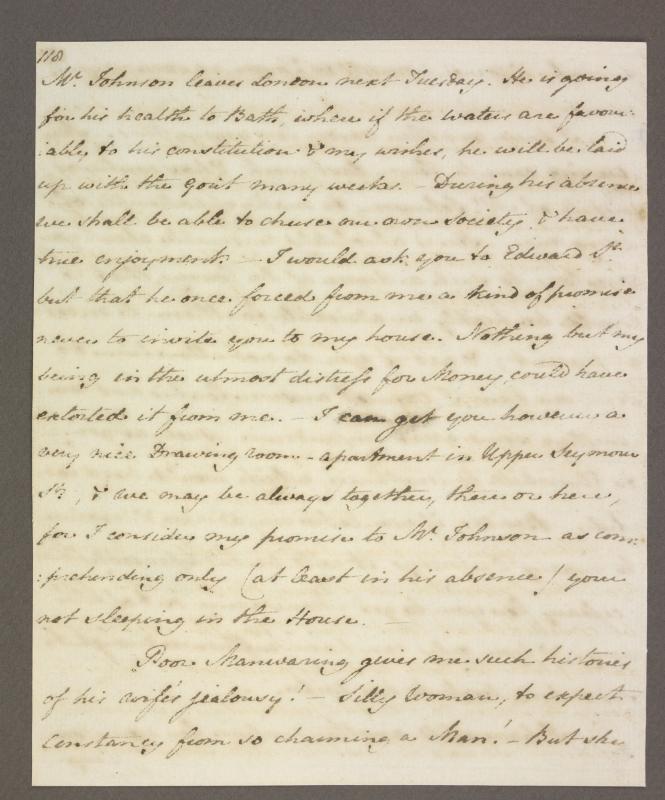 118
Mr. Johnson leaves London next Tuesday. He is going
for his health to Bath, where if the waters are favour:
:able to his constitution & my wishes, he will be laid
up with the gout many weeks. - During his absence
we shall be able to chuse our own Society, & have
true enjoyment. - I would ask you to Edward St.
but that he once forced from me a kind of promise
never to invite you to my house. Nothing but my
being in the utmost distress for Money, could have
extorted it from me. - I can get you however a
very nice Drawing room-apartment in Upper Seymour
St., & we may be always together, there or here,
for I consider my promise to Mr. Johnson as com:
:prehending only (at least in his absence) your
not sleeping in the House. -
Poor Manwaring gives me such histories
of his wife's jealousy! - Silly Woman, to expect
constancy from so charming a Man! - But she